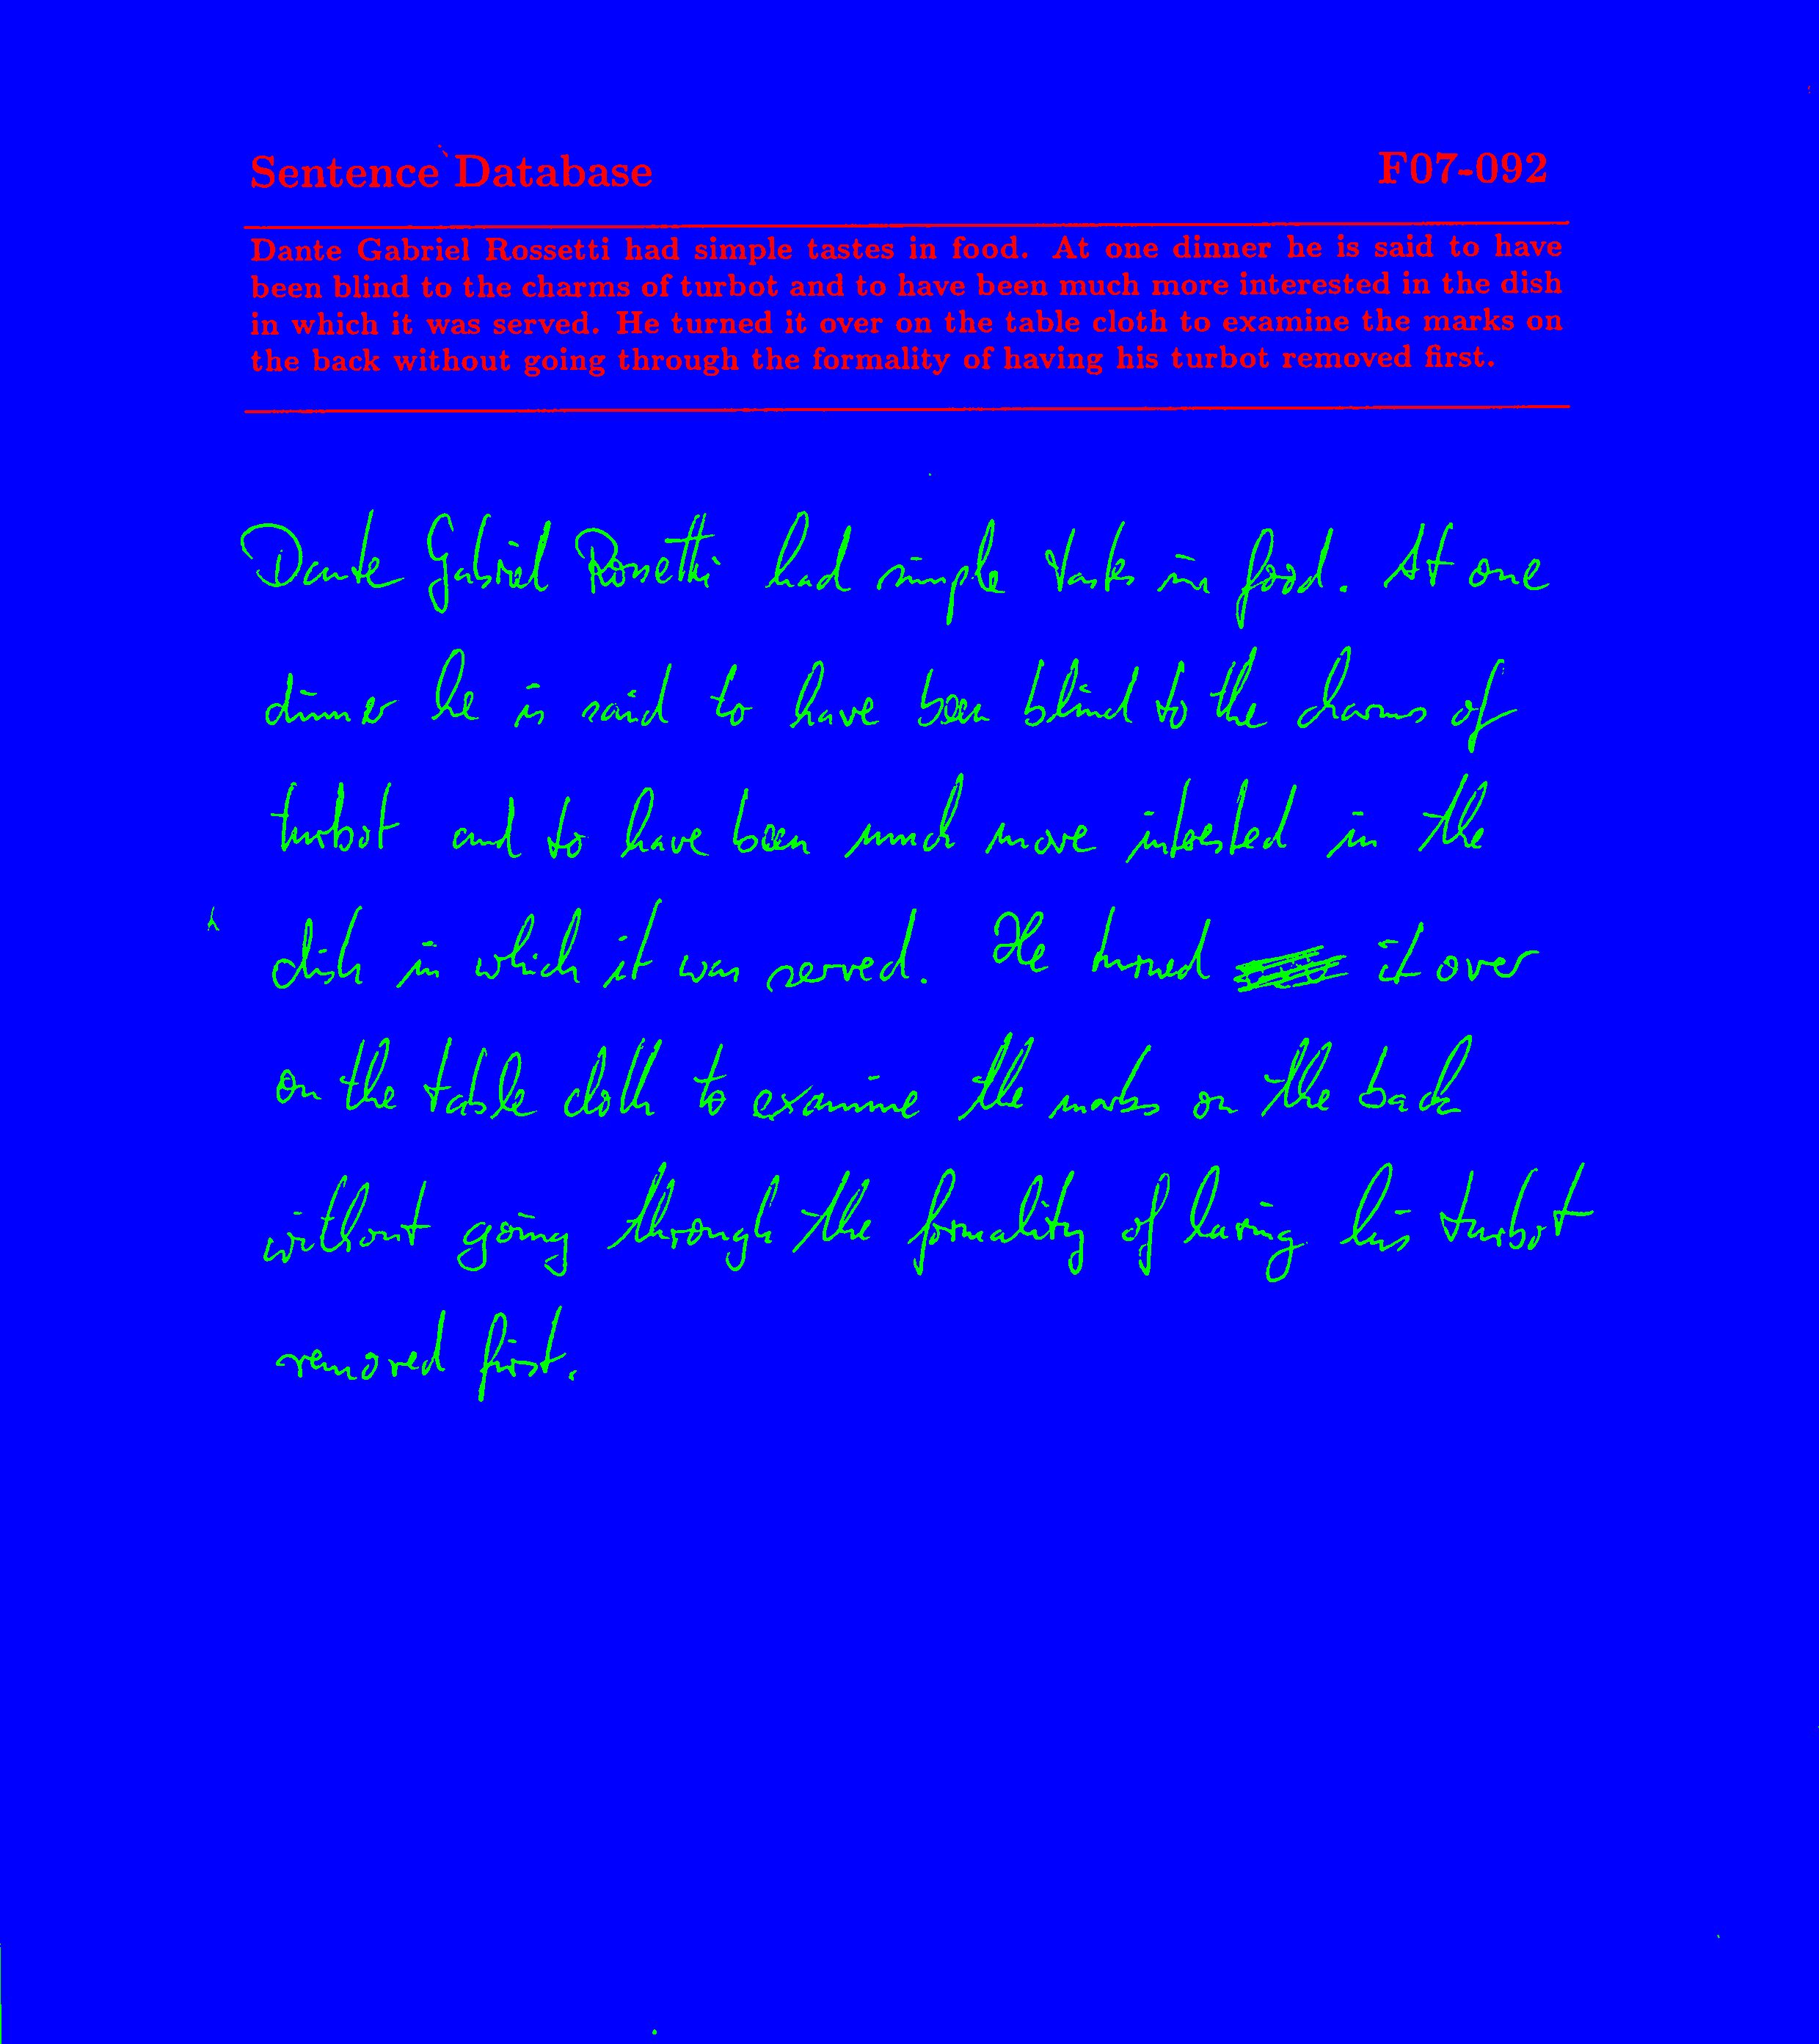 Sentence Database F07-092
Dante Gabriel Rossetti had simple tastes in food. At one dinner he is said to have
been blind to the charms of turbot and to have been much more interested in the dish
in which it was served. He turned it over on the table cloth to examine the marks on
the back without going through the formality of having his turbot removed first.
Dante Gabriel Rossetti had simple tastes in food. At one
dinner he is said to have been blind to the charms of
turbot and to have been much more interested in the
dish in which it was served. He turned it over
on the table cloth to examine the marks on the back
without going through the formality of having his turbot
removed first.